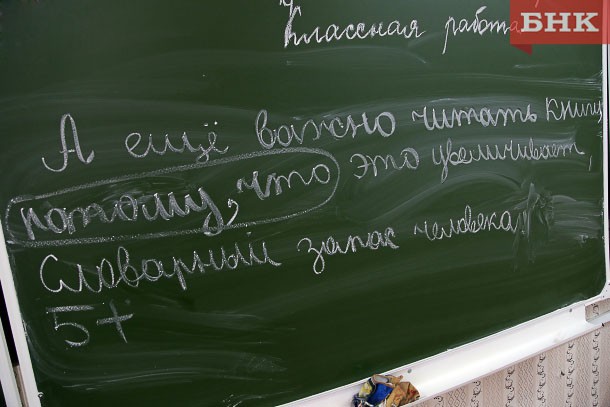 БНК
Классная работа
А ещё важно читать книги
потому, что это увеличивает,
Словарный запас человека.
5+